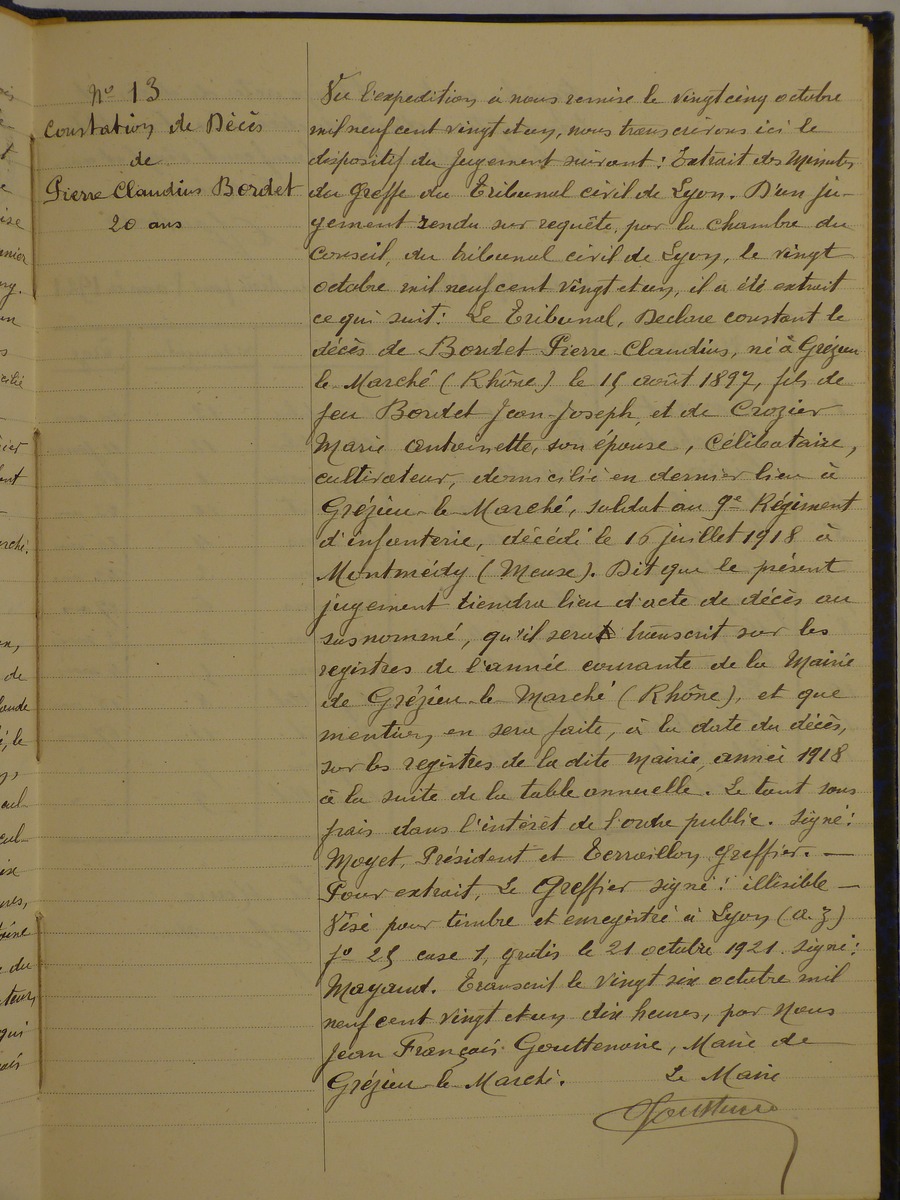 N° 13
Constation de Décès
de
Pierre Claudius Bordet
20 ans
Vu l'expedition à nous remise le vingt cinq octobre
mil neuf cent vingt et un, nous transcrivons ici le
dispositif du Jugement suivant : Extrait des Minutes
du Greffe du Tribunal civil de Lyon. D'un ju-
gement rendu sur requête, par la chambre du
Conseil, du tribunal civil de Lyon, le vingt
octobre mil neuf cent vingt et un, il a été extrait
ce qui suit : Le Tribunal, Declare constant le
décès de Bordet Pierre Claudius, né à Grézieu
le Marché (Rhône) le 15 août 1897, fils de
feu Bordet Jean-Joseph, et de Crozier
Marie Antoinette, son épouse, Célibataire,
cultivateur, domicilié en dernier lieu à
Grézieu-le-Marché, soldat au 9e Régiment
d'infanterie, décédé le 16 juillet 1918 à
Montmédy (Meuse). Dit que le présent
jugement tiendra lieu d'acte de décès au
susnommé, qu'il sera transcrit sur les
registres de l'année courante de la Mairie
de Grézieu-le-Marché (Rhône), et que
mention en sera faite, à la date du décès,
sur les registres de la dite Mairie, année 1918
à la suite de la table annuelle. Le tout sans
frais dans l'intérêt de l'ordre public. Signé :
Moyet, Président et Terraillon, Greffier. —
Pour extrait, Le Greffier signé : illisible —
Visé pour timbre et enregistré à Lyon (a. j)
f° 25 case 1, gratis le 21 octobre 1921. Signé :
Mayaud. Transcrit le vingt six octobre mil
neuf cent vingt et un dix heures, par Nous
Jean François Gouttenoire, Maire de
Grézieu-le-Marché. Le Maire
Gouttenoire